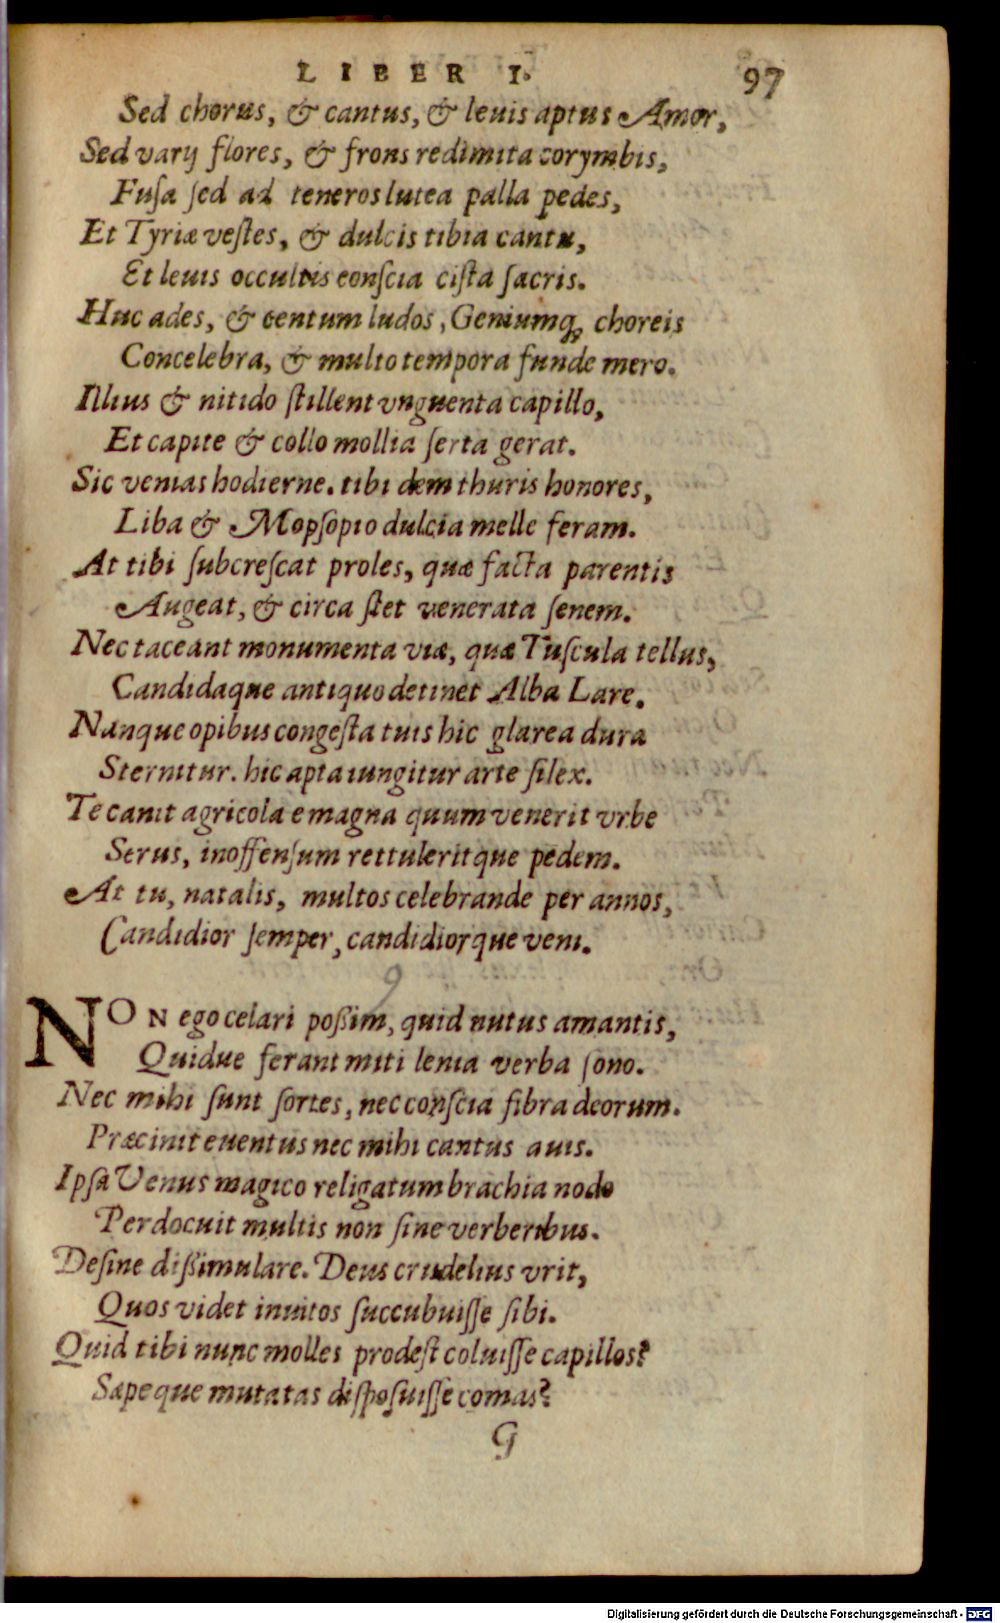 LIBER I. 97
Sed chorus, & cantus, & leuis aptus Amor,
Sed varij flores, & frons redimita corymbis,
Fusa sed ad teneros lutea palla pedes,
Et Tyriæ vestes, & dulcis tibia cantu,
Et leuis occultis conscia cista sacris.
Huc ades, & centum ludos, Geniumq; choreis
Concelebra, & multo tempora funde mero.
Illius & nitido stillent vnguenta capillo,
Et capite & collo mollia serta gerat.
Sic venias hodierne. tibi dem thuris honores,
Liba & Mopsopio dulcia melle feram.
At tibi subcrescat proles, quæ facta parentis
Augeat, & circa stet venerata senem.
Nec taceant monumenta viæ, quæ Tuscula tellus,
Candidaque antiquo detinet Alba Lare.
Nanque opibus congesta tuis hic glarea dura
Sternitur. hic apta iungitur arte silex.
Te canit agricola e magna quum venerit vrbe
Serus, inoffensum rettuleritque pedem.
At tu, natalis, multos celebrande per annos,
Candidior semper, candidiorque veni.
9
NON ego celari poßim, quid nutus amantis,
Quidue ferant miti lenia verba sono.
Nec mihi sunt sortes, nec conscia fibra deorum.
Præcinit euentus nec mihi cantus auis.
Ipsa Venus magico religatum brachia nodo
Perdocuit multis non sine verberibus.
Desine dißimulare. Deus crudelius vrit,
Quos videt inuitos succubuisse sibi.
Quid tibi nunc molles prodest coluisse capillos?
Sæpeque mutatas disposuisse comas?
G
Digitalisierung gefördert durch die Deutsche Forschungsgemeinschaft - DFG